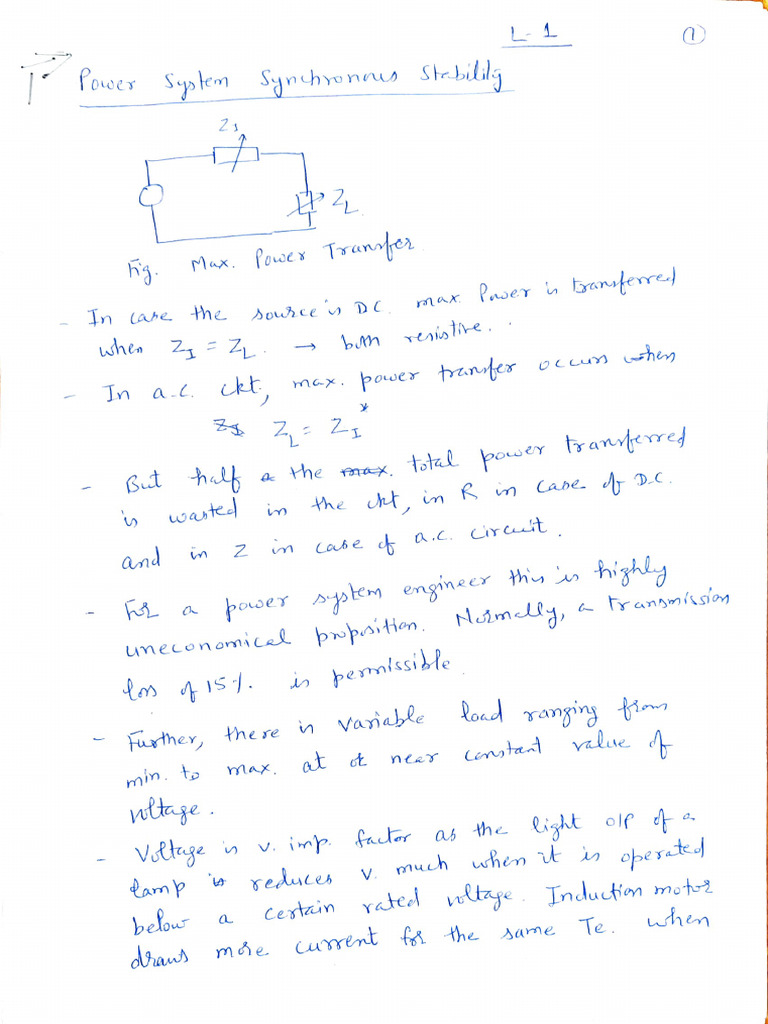 L-1
1
Power System Synchronous Stability
Zs
ZL
Fig. Max. Power Transfer
- In case the source is DC. max. Power is transferred
when ZI = ZL. → both resistive.
- In a.c. ckt, max. power transfer occurs when
ZL = ZI*
- But half the total power transferred
is wasted in the ckt, in R in case of D.C.
and in Z in case of a.c. circuit.
- For a power system engineer this is highly
uneconomical proposition. Normally, a transmission
loss of 15%. is permissible.
- Further, there is variable load ranging from
min. to max. at or near constant value of
voltage.
- Voltage is v. imp. factor as the light o/p of a
lamp reduces v. much when it is operated
below a certain rated voltage. Induction motor
draws more current for the same Te. when